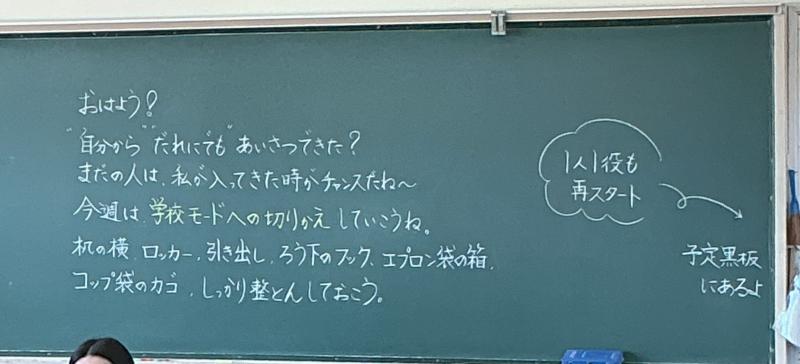 おはよう?
"自分から" "だれにでも" あいさつできた?
まだの人は、私が入ってきた時がチャンスだね〜
今週は、学校モードへの切りかえ していこうね。
机の横、ロッカー、引き出し、ろう下のフック、エプロン袋の箱、
コップ袋のカゴ、しっかり整とんしておこう。
1人1役も
再スタート
予定黒板
にあるよ